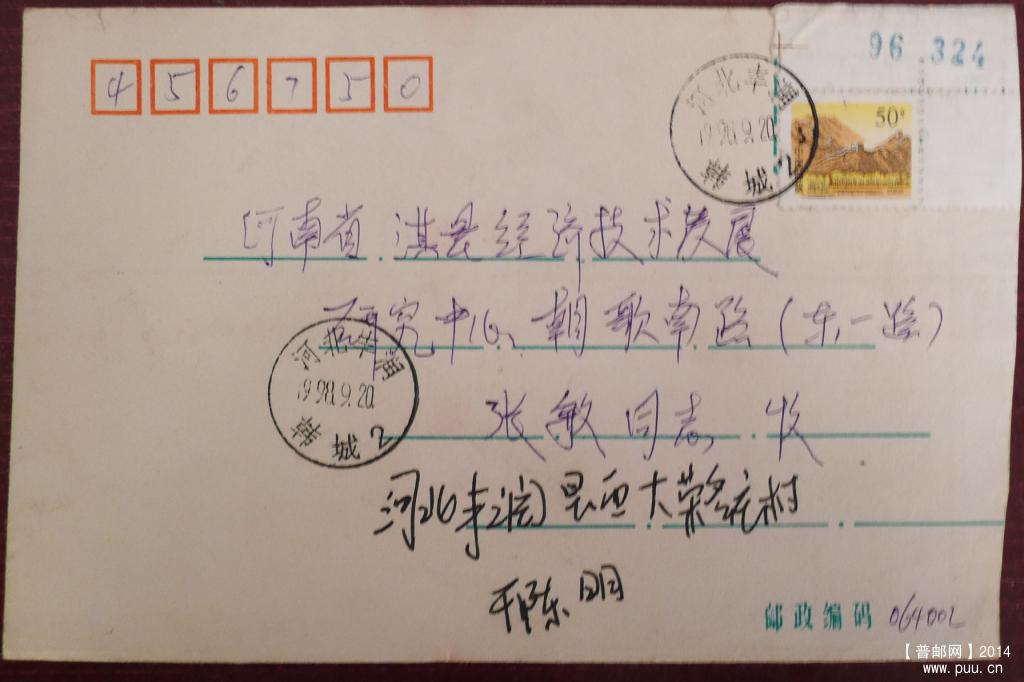 96 324
456750
50分
河北丰润
1998.9.20
华城 2
河南省淇县经济技术发展
研究中心、朝歌南路(东一路)
河北丰润
1998.9.20
华城 2
张敏同志 收
河北丰润县西大荣各庄村
陈明
邮政编码 064002
【普邮网】2014
www.puu.cn